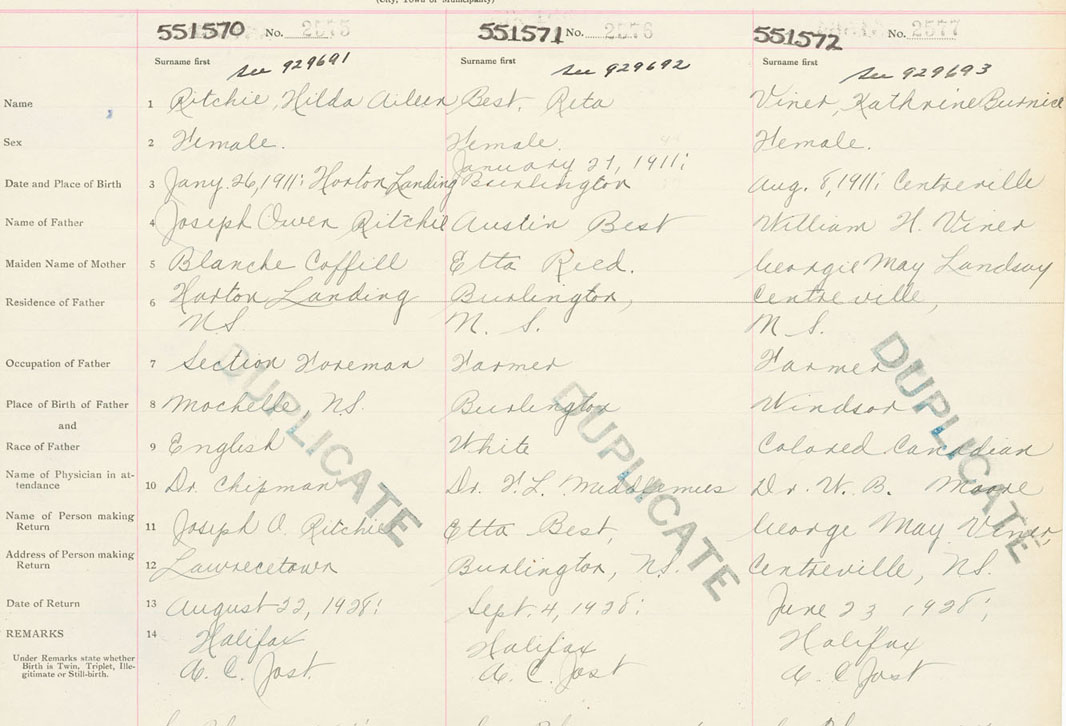 (City, Town or Municipality)
551570 No. 2575 551571 No. 2576 551572 No. 2577
Surname first Surname first Surname first
see 929691 see 929692 see 929693
Name 1 Ritchie, Hilda Aileen Best, Reta Viner, Kathrine Burnice
Sex 2 Female. Female. Female.
January 27, 1911;
Date and Place of Birth 3 Jany. 26, 1911: Horton Landing Burlington Aug. 8, 1911; Centreville
Name of Father 4 Joseph Owen Ritchie Austin Best William H. Viner
Maiden Name of Mother 5 Blanche Coffill Etta Reed. Georgie May Landsay
Residence of Father 6 Horton Landing Burlington, Centreville,
NS N. S. N S.
Occupation of Father 7 Section Foreman Farmer Farmer
Place of Birth of Father 8 Mochelle NS. Burlington Windsor
and
Race of Father 9 English White Colored Canadian
Name of Physician in at-
tendance 10 Dr. Chipman Dr. F. L. Dr. W. B. Moore
Name of Person making
Return 11 Joseph O. Ritchie Etta Best, George May Viner,
Address of Person making
Return 12 Lawrecetown Burlington, NS. Centreville, NS.
Date of Return 13 August 22, 1928; Sept. 4, 1928; June 23 1928;
REMARKS 14 Halifax Halifax Halifax
Under Remarks state whether
Birth is Twin, Triplet, Ille-
gitimate or Still-birth.
A. C. Jost. A. C. Jost A. C Jost
DUPLICATE DUPLICATE DUPLICATE